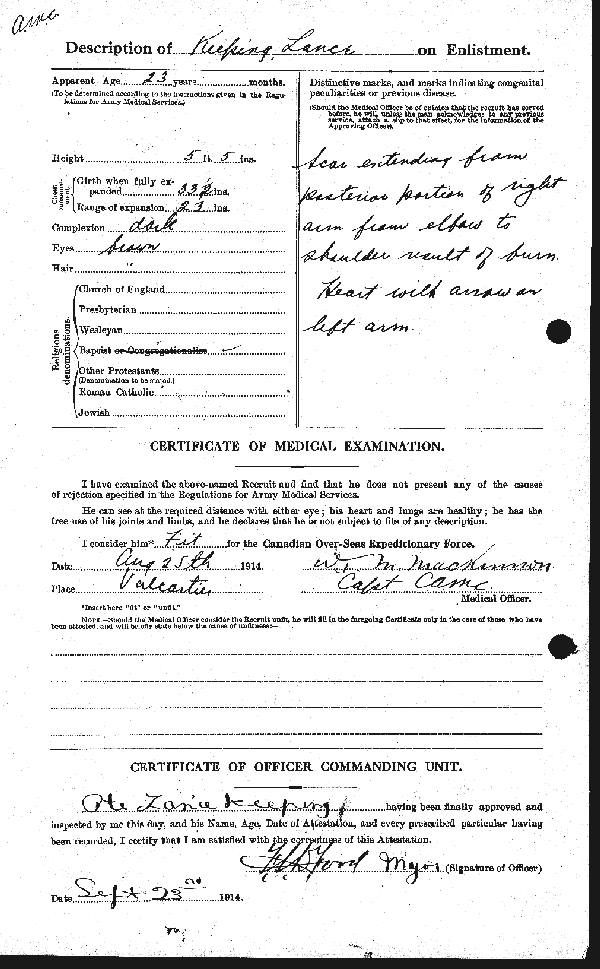 Description of Keeping, Lance on Enlistment.
Apparent Age 23 years months.
(To be determined according to the instructions given in the Regulations for Army Medical Services.)
Height 5 ft. 5 ins.
Girth when fully expanded ins.
Range of expansion ins.
Complexion dark
Eyes brown
Hair "
Religious denominations.
Church of England
Presbyterian
Wesleyan
Baptist or Congregationalist ✓
Other Protestants
(Denomination to be stated.)
Roman Catholic
Jewish
Distinctive marks, and marks indicating congenital
peculiarities or previous disease.
(Should the Medical Officer be of opinion that the recruit has served
before, he will, unless the man acknowledges to any previous
service, attach a slip to that effect, for the information of the
Approving Officer).
Scar extending from
posterior portion of right
arm from elbow to
shoulder result of burn.
Heart with arrow on
left arm.
CERTIFICATE OF MEDICAL EXAMINATION.
I have examined the above-named Recruit and find that he does not present any of the causes
of rejection specified in the Regulations for Army Medical Services.
He can see at the required distance with either eye; his heart and lungs are healthy; he has the
free use of his joints and limbs, and he declares that he is not subject to fits of any description.
I consider him* Fit for the Canadian Over-Seas Expeditionary Force.
Date Aug 25th 1914.
Place Valcartier
W. M. MacKinnon
Capt CAMC
Medical Officer.
*Insert here "fit" or "unfit."
NOTE.—Should the Medical Officer consider the Recruit unfit, he will fill in the foregoing Certificate only in the case of those who have
been attested, and will briefly state below the cause of unfitness:—
CERTIFICATE OF OFFICER COMMANDING UNIT.
Pte Lance Keeping having been finally approved and
inspected by me this day, and his Name, Age, Date of Attestation, and every prescribed particular having
been recorded, I certify that I am satisfied with the correctness of this Attestation.
Major (Signature of Officer)
Date Sept 23rd 1914.